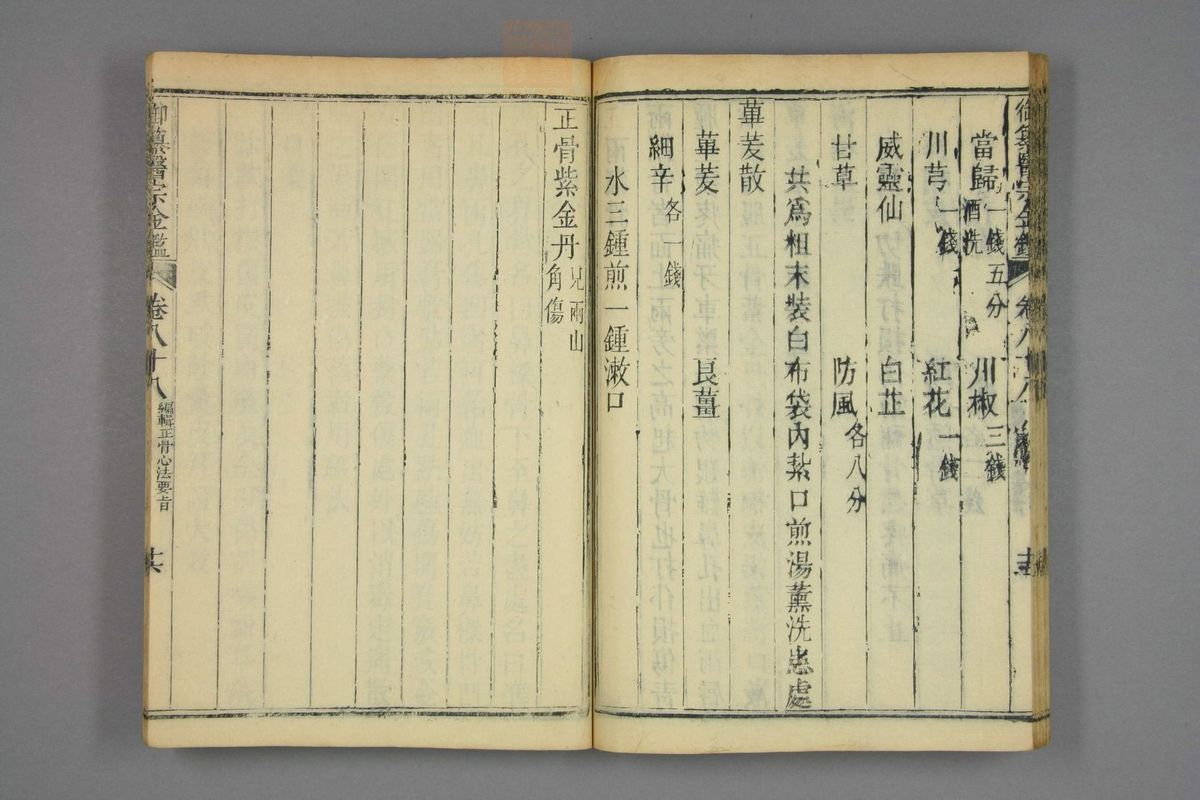 御纂醫宗金鑑 卷八十八
當歸一錢五分酒洗 川椒三錢
川芎一錢 紅花一錢
威靈仙 白芷
甘草 防風各八分
共為粗末裝白布袋內紮口煎湯薰洗患處
蓽茇散
蓽茇 良薑
細辛各一錢
水三鍾煎一鍾漱口
正骨紫金丹見兩山角傷
御纂醫宗金鑑 卷八十八 編輯正骨心法要旨